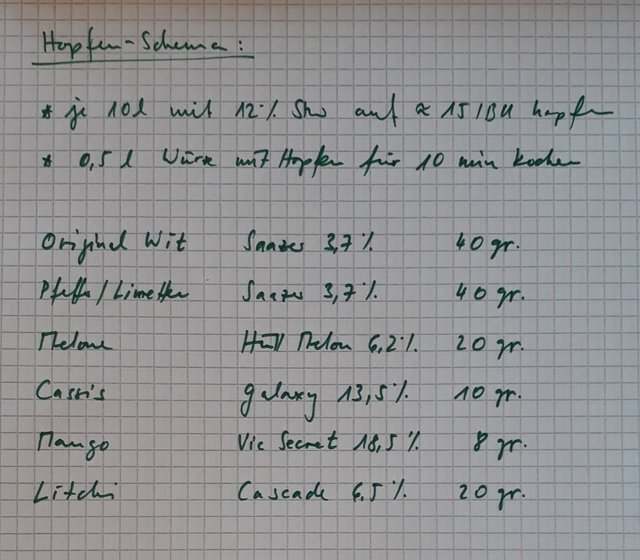 Hopfen-Schema:
* je 10l mit 12% Stw auf ≈ 15 IBU hopfen
* 0,5 l Würze mit Hopfen für 10 min kochen
Original Wit Saazer 3,7% 40 gr.
Pfeffer/Limetten Saazer 3,7% 40 gr.
Melone Hüll Melon 6,2% 20 gr.
Cassis Galaxy 13,5% 10 gr.
Mango Vic Secret 18,5% 8 gr.
Litchi Cascade 6,5% 20 gr.